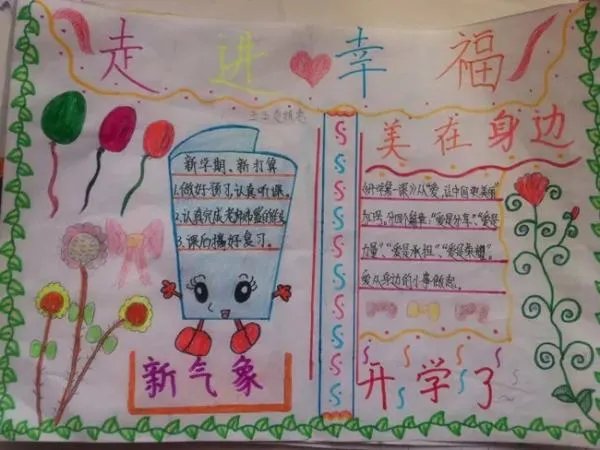 走进幸福
美在身边
新学期、新打算
1.做好预习,认真听课。
2.认真完成老师布置的作业
3.课后搞好复习。
《开学第一课》从“爱,让中国更美丽”
为主题,分四个篇章:“爱是分享”、“爱是
力量”、“爱是承担”、“爱是荣耀”。
爱从身边的小事做起。
新气象
开学了